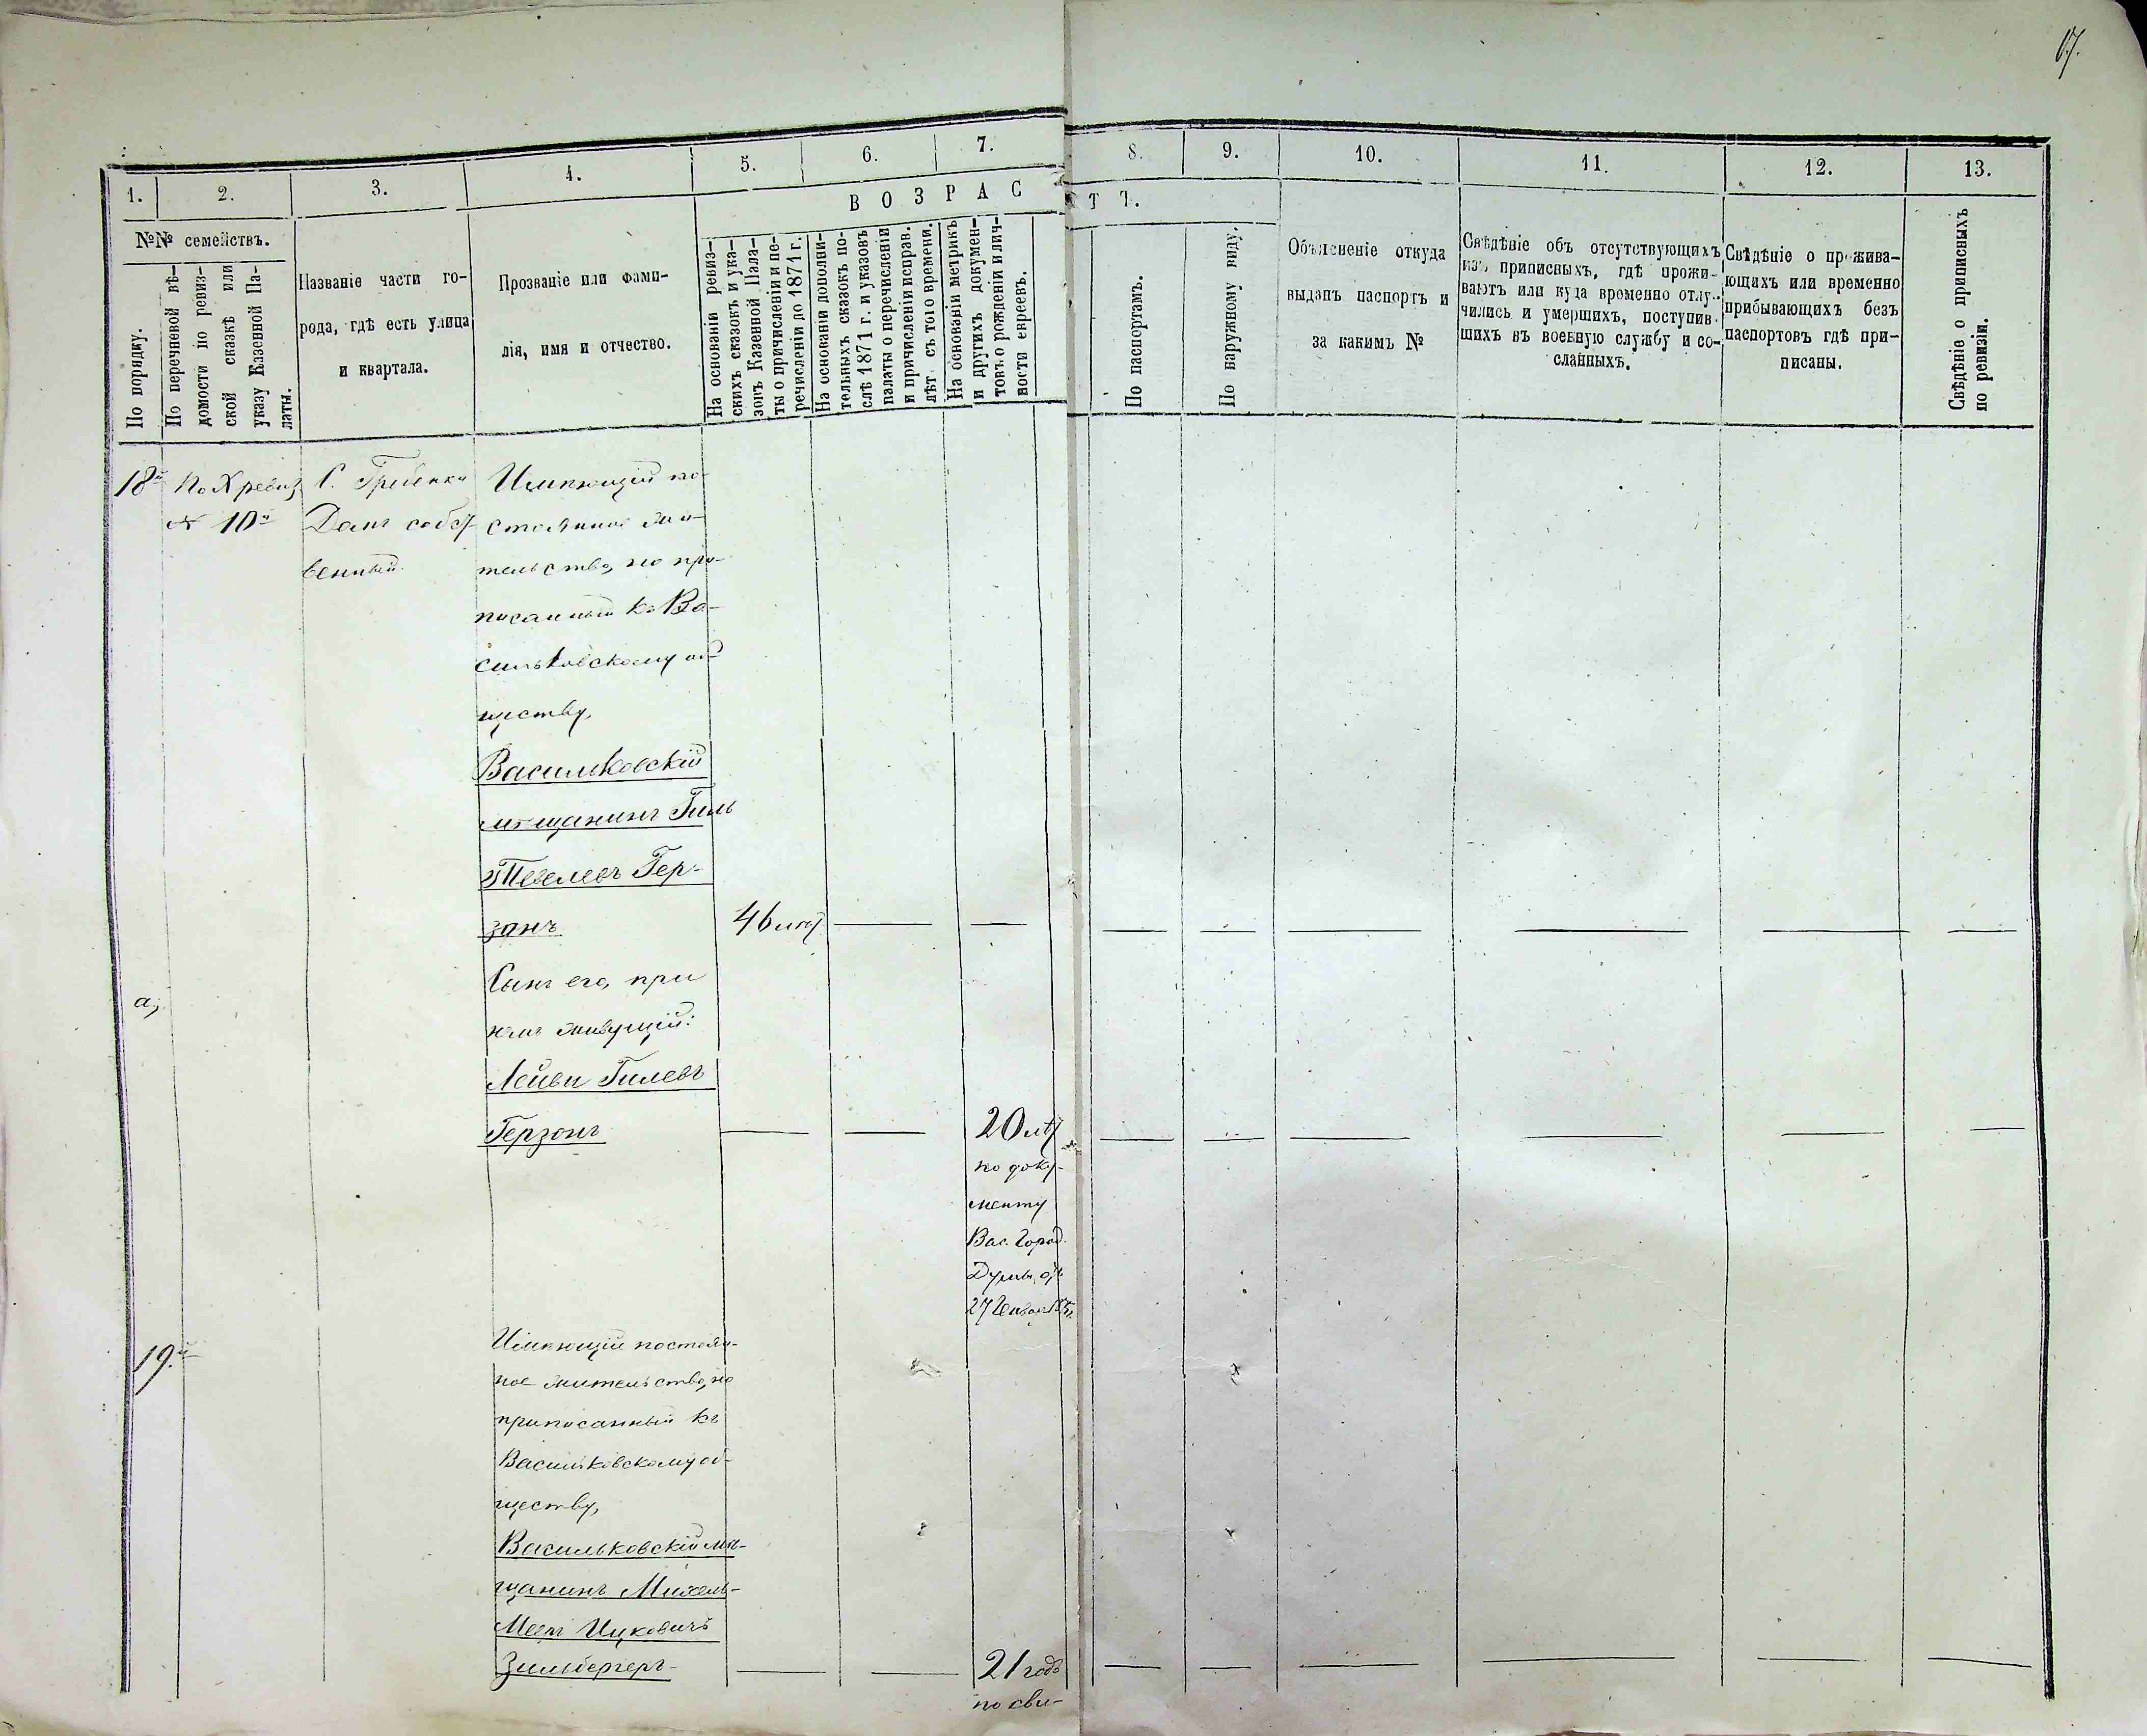 67.
1.
2.
3.
4.
5.
6.
7.
8.
9.
10.
11.
12.
13.
№№ семействъ.
По порядку.
По перечневой вѣ-
домости по ревиз-
ской сказкѣ или
указу Казенной Па-
латы.
Названіе части го-
рода, гдѣ есть улица
и квартала.
Прозваніе или фами-
лія, имя и отчество.
ВОЗРАСТЪ.
На основаніи ревиз-
скихъ сказокъ и ука-
зовъ Казенной Пала-
ты о причисленіи и пе-
речисленіи до 1871 г.
На основаніи дополни-
тельныхъ сказокъ по-
слѣ 1871 г. и указовъ
палаты о перечисленіи
и причисленіи исправ.
лѣт съ того времени.
На основаніи метрикъ
и другихъ докумен-
товъ о рожденіи и лич-
ности евреевъ.
По паспортамъ.
По наружному виду.
Объясненіе откуда
выданъ паспортъ и
за какимъ №
Свѣдѣніе объ отсутствующихъ
изъ приписныхъ, гдѣ прожи-
ваютъ или куда временно отлу-
чились и умершихъ, поступив-
шихъ въ военную службу и со-
сланныхъ.
Свѣдѣніе о прожива-
ющихъ или временно
прибывающихъ безъ
паспортовъ гдѣ при-
писаны.
Свѣдѣніе о приписныхъ
по ревизіи.
18й По X ревиз. С. Гребенки Имѣющій по-
№ 10й Домъ собст стоянное жи-
венный. тельство, но при-
писанный къ Ва-
сильковскому об-
ществу,
Васильковскій
мѣщанинъ Гиль
Тевелевъ Гер-
зонъ 46 лѣт
а, Сынъ его, при
немъ живущій:
Лейви Гилевъ
Герзонъ 20 лѣт
по доку-
менту
Вас. Город.
Думы отъ
19.й Имѣющій постоян-
ное жительство, но
приписанный къ
Васильковскому об-
ществу,
Васильковскій мѣ-
щанинъ Михель-
Меер Ицковичъ
Зильбергеръ 21 годъ
по сви-